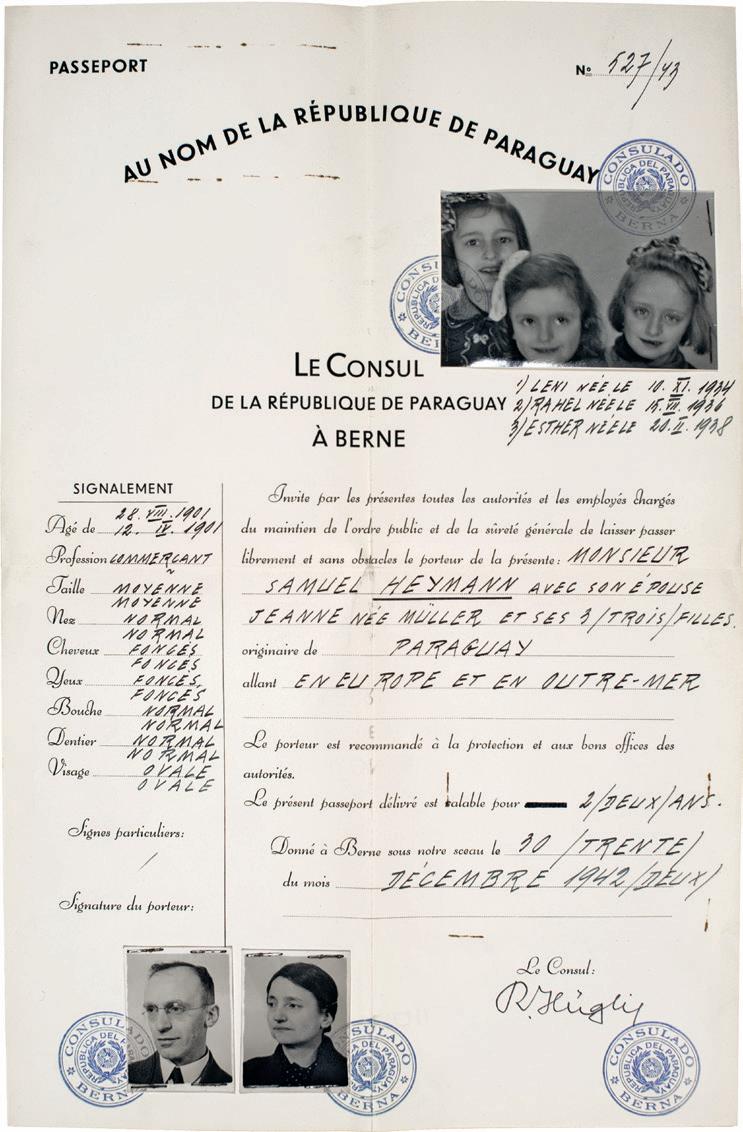 PASSEPORT
Nº 527/43
AU NOM DE LA RÉPUBLIQUE DE PARAGUAY
CONSULADO
REPUBLICA DEL PARAGUAY
BERNA
LE CONSUL
DE LA RÉPUBLIQUE DE PARAGUAY
À BERNE
1) LENI NÉE LE 10. XI. 1934
2) RAHEL NÉE LE 15. VII. 1936
3) ESTHER NÉE LE 20. II. 1938
SIGNALEMENT
28. VIII. 1901
Agé de 12. IV. 1901
Profession COMMERÇANT
Taille MOYENNE
MOYENNE
Nez NORMAL
NORMAL
Cheveux FONCÉS
FONCÉS
Yeux FONCÉS
FONCÉS
Bouche NORMAL
NORMAL
Dentier NORMAL
NORMAL
Visage OVALE
OVALE
Signes particuliers:
/
Signature du porteur:
Invite par les présentes toutes les autorités et les employés chargés
du maintien de l'ordre public et de la sûreté générale de laisser passer
librement et sans obstacles le porteur de la présente: MONSIEUR
SAMUEL HEYMANN AVEC SON ÉPOUSE
JEANNE NÉE MÜLLER ET SES 3/TROIS/FILLES.
originaire de PARAGUAY
allant EN EUROPE ET EN OUTRE-MER
Le porteur est recommandé à la protection et aux bons offices des
autorités.
Le présent passeport délivré est valable pour 2/DEUX/ANS.
Donné à Berne sous notre sceau le 30 /TRENTE/
du mois DÉCEMBRE 1942/DEUX/
Le Consul:
R. Hügli
CONSULADO
REPUBLICA DEL PARAGUAY
BERNA
CONSULADO
REPUBLICA DEL PARAGUAY
BERNA
CONSULADO
REPUBLICA DEL PARAGUAY
BERNA